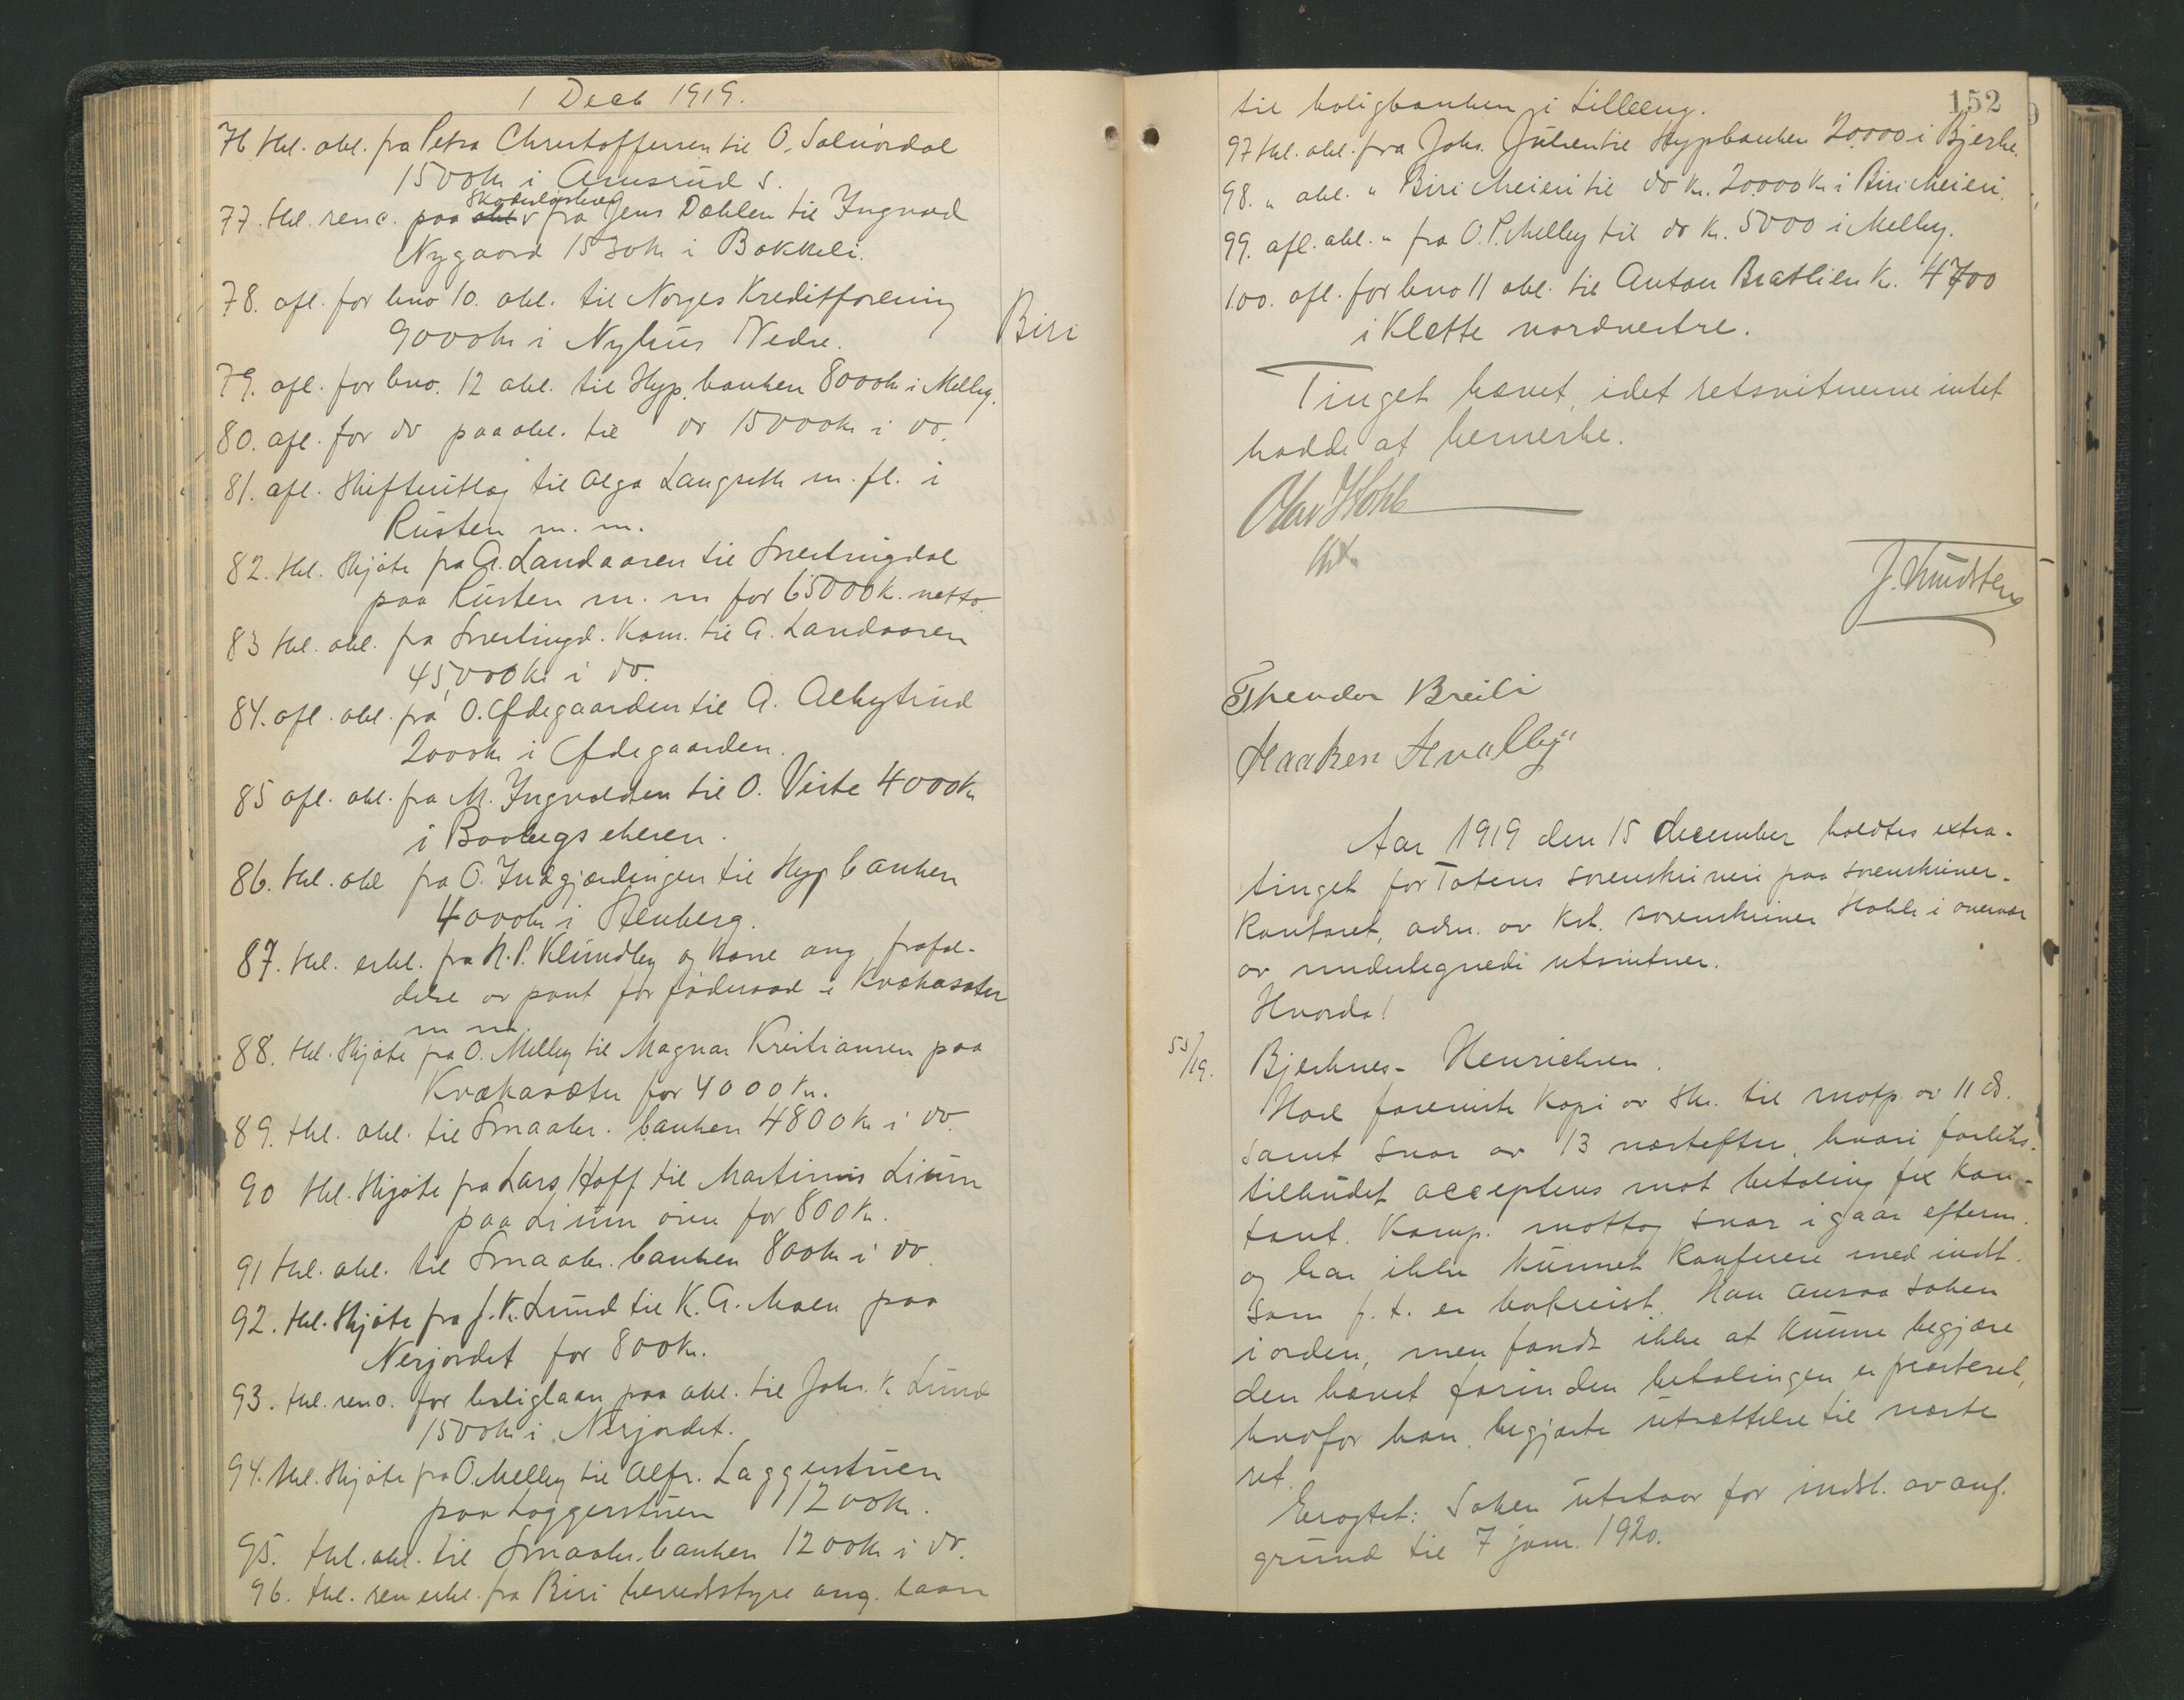 1 Decb 1919.
76 thl. obl. fra Petra Christoffersen til O. Solnørdal
1500 kr i Amsrud s.
77. thl. renc. paa skadesløsbrev fra Jens Dæhlen til Ingvad
Nygaard 1530 kr i Bakkeli.
78. afl. for bno 10. obl. til Norges Kreditforening
9000 kr i Nyhus Nedre.
Biri
79. afl. for bno. 12 obl. til Hyp. banken 8000 kr i Melby.
80. afl. for do paa obl. til do 15000 kr i do.
81. afl. Skifteutlæg til Olga Langseth m. fl. i
Rusten m. m.
82. thl. Skjøte fra A. Landaasen til Snertingdal
paa Rusten m. m for 65000 k. netto.
83 thl. obl. fra Snertingd. Kom. til A. Landaasen
45,000 kr i do.
84. afl. obl. fra O. Ødegaarden til A. Alhytrud
2000 kr i Ødegaarden.
85 afl. obl. fra M. Ingvaldsen til O. Viste 4000 kr
i
86. thl. obl fra O. Indgjærdingen til Hyp banken
4000 kr i Stenberg.
87. thl. erkl. fra N. P. Klundby og Kone ang frafal-
delse av pant for føderaad i Kvækasæter
m m.
88. thl. Skjøte fra O. Melby til Magnar Kristiansen paa
Kvækasæter for 4000 kr.
89. thl. obl. til Smaabr. banken 4800 kr i do.
90 thl. Skjøte fra Lars Hoff til Martinus Lium
paa Lium øvre for 800 kr.
91 thl. obl. til Smaabr. banken 800 kr i do.
92. thl. Skjøte fra J. K. Lund til K. A. Moen paa
Nerjordet for 800 kr.
93. thl. renc. for boliglaan paa obl. til Johs. K Lund
1500 kr i Nerjordet.
94. thl. Skjøte fra O. Melby til Alfr. Laggerstuen
paa Laggerstuen 1200 kr.
95. thl. obl. til Smaabr. banken 1200 kr i do.
96. thl. ren erkl. fra Biri herredsstyre ang. laan
152
til boligbanken i Lilleeng.
97 thl. obl. fra Johs. Julsen til Hypbanken 20,000 i Bjerke.
98. " obl. " Biri Meieri til do kr. 20000 kr i Biri Meieri.
99. afl. obl. " fra O. P. Melby til do kr. 5000 i Melby.
100. afl. for bno 11 obl. til Anton Bratlien kr. 4700
i Klette nordvestre.
Tinget hævet, idet retsvitnerne intet
hadde at bemerke.
Olav Hohle
kst.
J. Knudsten
Theodor Breili
Haaken Hvalby
Aar 1919 den 15 december holdtes extra-
tinget for Totens sorenskriveri paa sorenskriver-
kontoret, adm. av kst. sorenskriver Hohle i overvær
av undertegnede retsvitner.
Hvorda!
53/19. Bjerknes - Henriksen.
Hoel fremviste kopi av skr. til motp. av 11 ds.
samt svar av 13 næstefter, hvori forliks-
tilbudet accepteres mot betaling pr kon-
tant. Komp. mottog svar igaar efterm.
og har ikke kunnet konferere med indst.
som p. t. er bortreist. Han ansaa saken
iorden, men fandt ikke at kunne begjære
den hævet førinden betalingen er præsteret,
hvorfor han begjærte utsættelse til næste
ret.
Eragtet: Saken utstaar for indst. av anf.
grund til 7 jan. 1920.